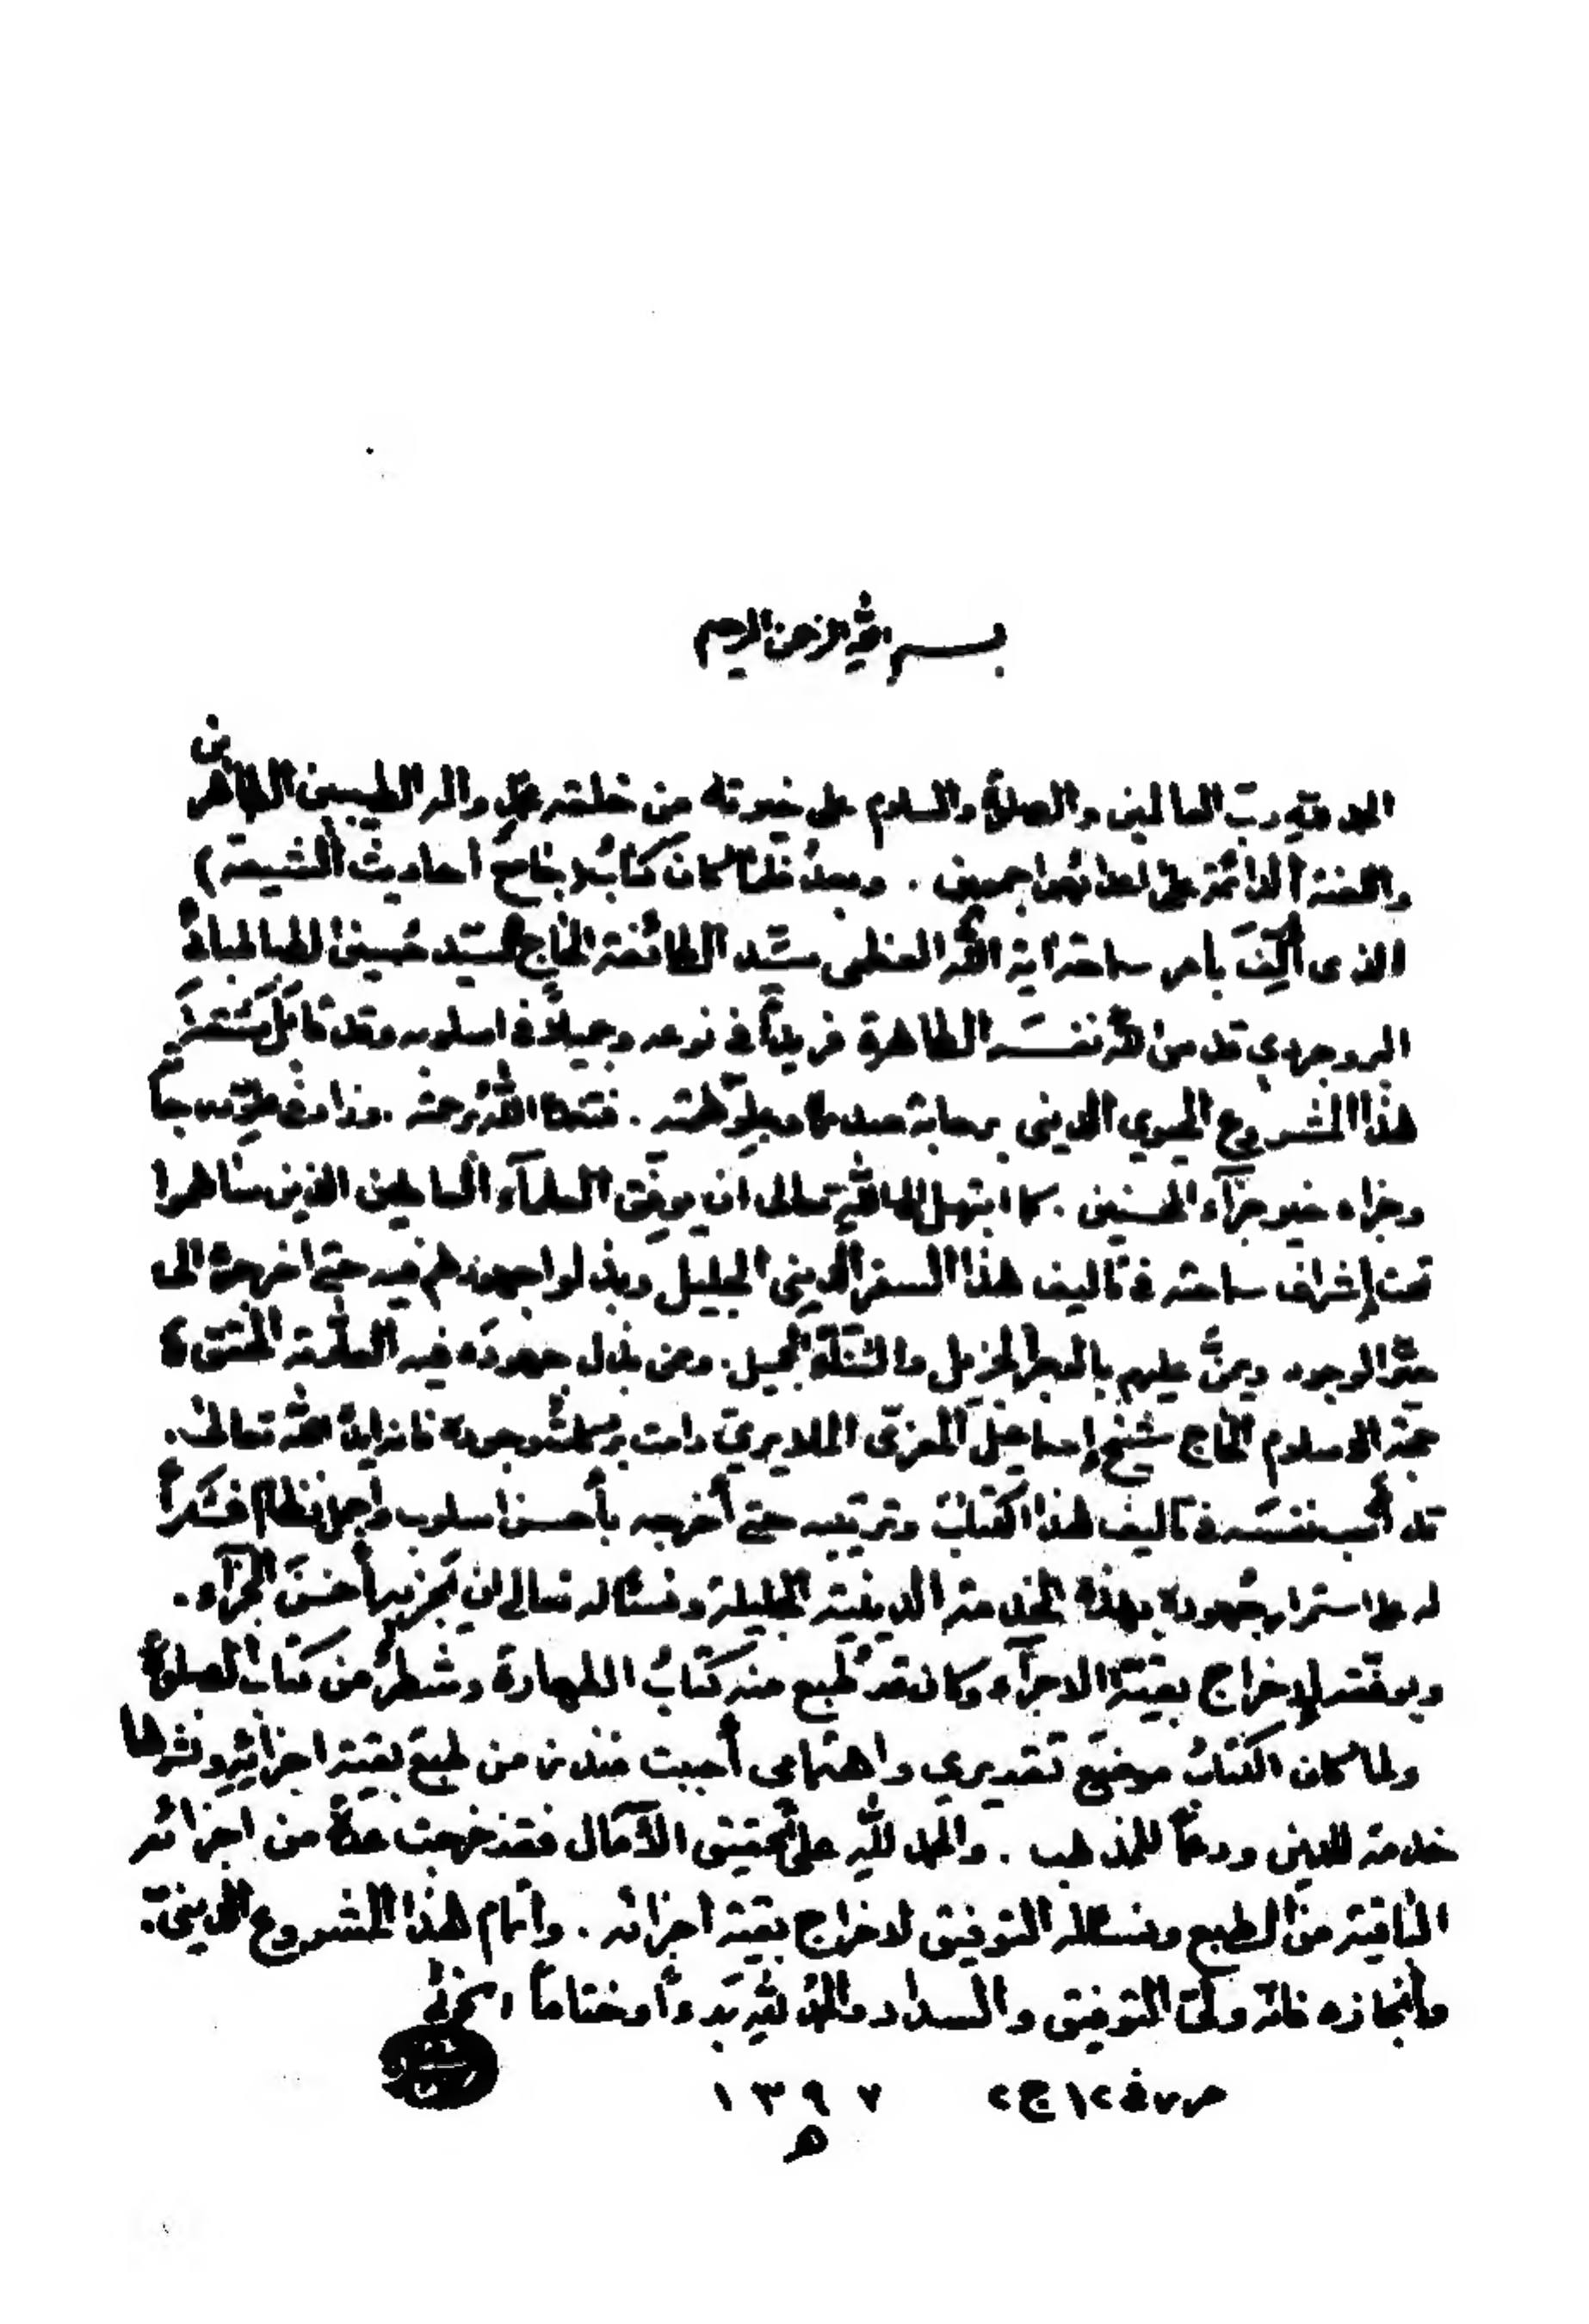 بسم الله الرحمن الرحيم
الحمد لله رب العالمين والصلاة والسلام على خيرته من خلقه محمد واله الطيبين الطاهرين
واللعنة الدائمة على اعدائهم اجمعين . وبعدُ فلما كان كتابُ (جامع احاديث الشيعة)
الذى أُلِّفَ بأمر سماحة اية الله العظمى سيّد الطائفة الحاج السيّد حُسين الطباطبائي
البروجردي قدس الله نفسَه الطاهرة فريداً في نوعه وجميلاً في اسلوبه وقد
هذا المشروع الحيوي الديني برحابة صدره وعلوّ همّته . فتغمده الله برحمته . وزاد في علوّ درجاته
وجزاه خير جزآء المحسنين . كما ابتهل الى الله تعالى ان يوفّق العلمآء العاملين الذين ساهموا
تحت إشراف سماحته في تأليف هذا السفر الديني الجليل وبذلوا جهودهم فيه حتى اخرجوه الى
حيّز الوجود ويمنَّ عليهم بالاجر الجزيل والثناء الجميل . وممن بذل جهودَه فيه العلّامة المحقق
حجة الاسلام الحاج شيخ إسماعيل المعزّى الملايري دامت بركات وجوده فانه ايّده الله تعالى .
قد أتعب نفسَه في تأليف هذا الكتاب وترتيبه حتى أخرجه بأحسن اسلوب وأجمل نظام فشكراً
له على استمرار جُهوده بهذه الخدمة الدينية الجليلة ونسأله تعالى ان يجزيه أحسَن الجزآء .
ويوفّقه لإخراج بقيّة الاجزآء وكان قد طُبع منه كتابُ الطهارة وشطرٌ من كتاب الصلوة
ولما كان الكتابُ موضعَ تقديري واهتمامي أحببت منذ زمن طبعَ بقية اجزائه ونشرها
خدمة للدين ودعماً للمذهب . والحمد للهِ على تحقيق الآمال فقد خرجت عدة من اجزائه
الباقية من الطبع ونسأله التوفيق لاخراج بقية اجزائه . واتمام هذا المشروع الديني .
وانجازه فانه وليّ التوفيق والسداد والحمدُ للهِ بَدءاً وختاماً الخوئي
في ٢١ ج ٢ ١٣٩٧
هـ